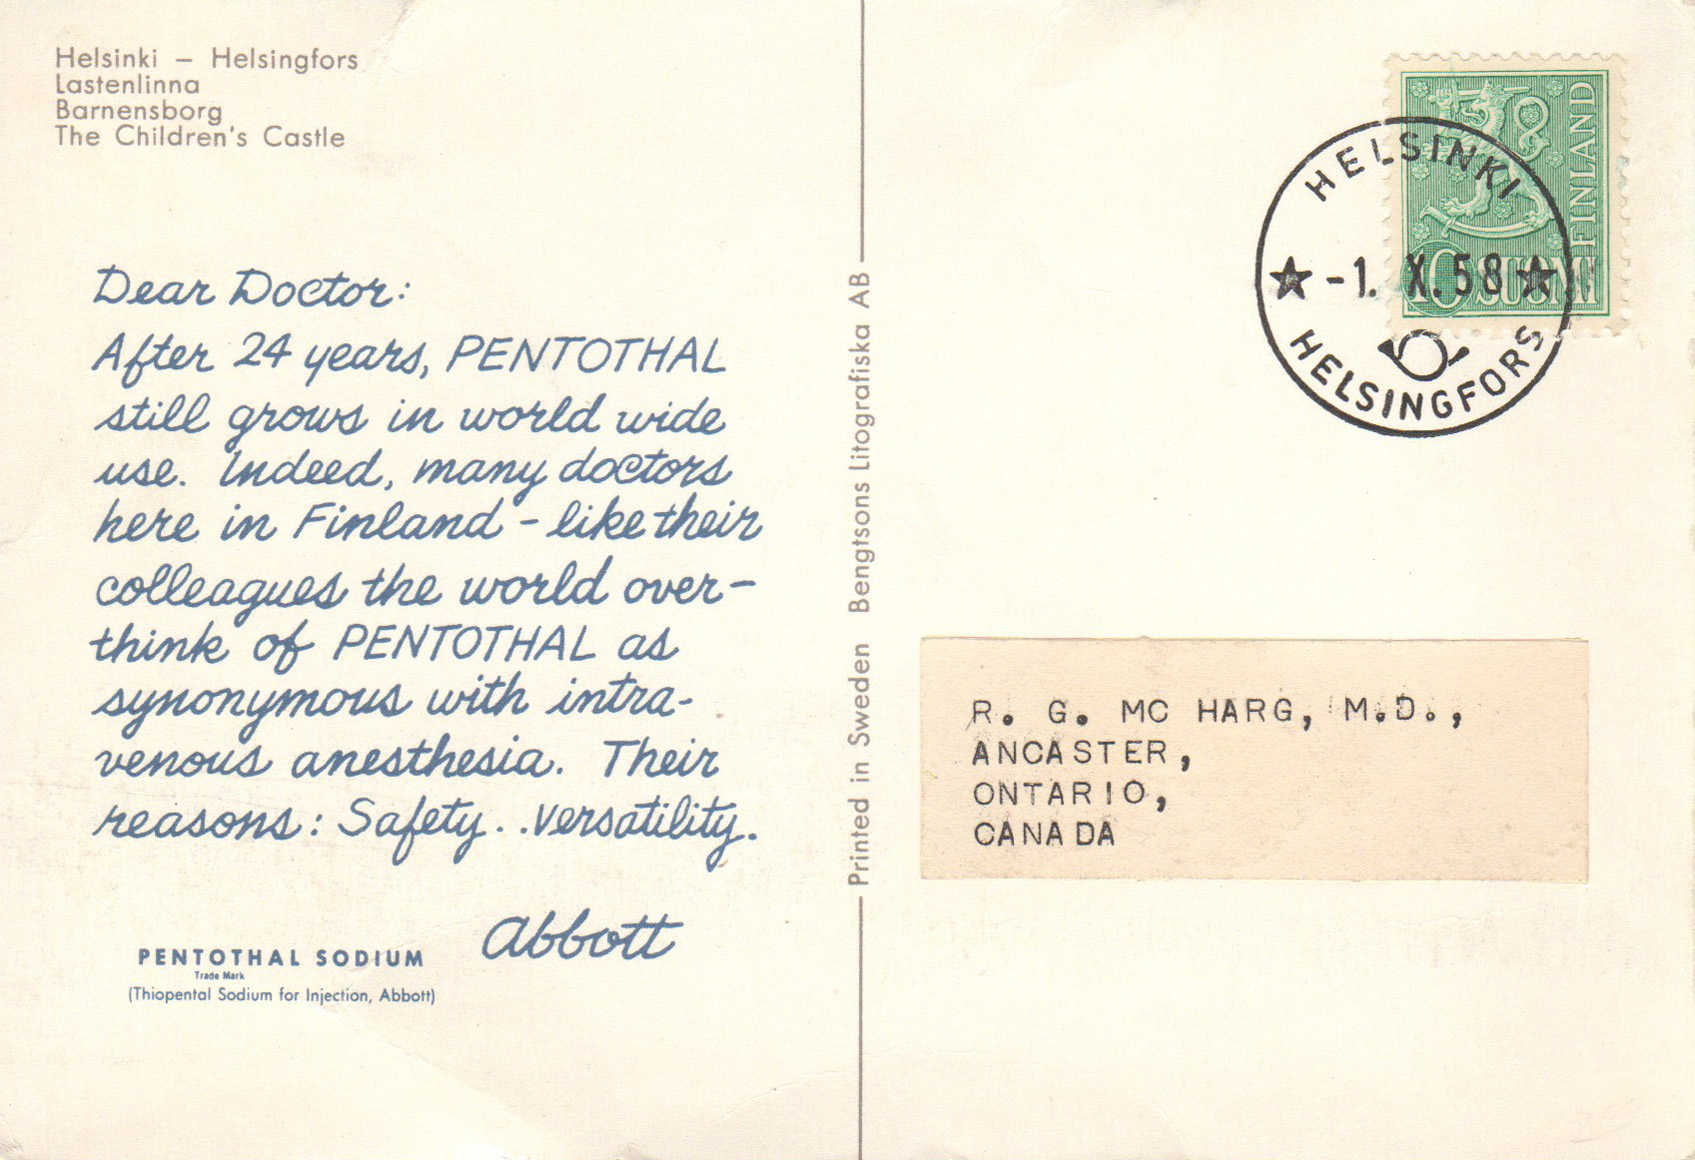 Helsinki – Helsingfors
Lastenlinna
Barnensborg
The Children's Castle
Dear Doctor:
After 24 years, PENTOTHAL
still grows in world wide
use. Indeed, many doctors
here in Finland – like their
colleagues the world over –
think of PENTOTHAL as
synonymous with intra-
venous anesthesia. Their
reasons: Safety. . .versatility.
Abbott
PENTOTHAL SODIUM
Trade Mark
(Thiopental Sodium for Injection, Abbott)
Printed in Sweden Bengtsons Litografiska AB
FINLAND
10 SUOMI
HELSINKI
★ -1. X. 58 ★
HELSINGFORS
R. G. MC HARG, M.D.,
ANCASTER,
ONTARIO,
CANADA